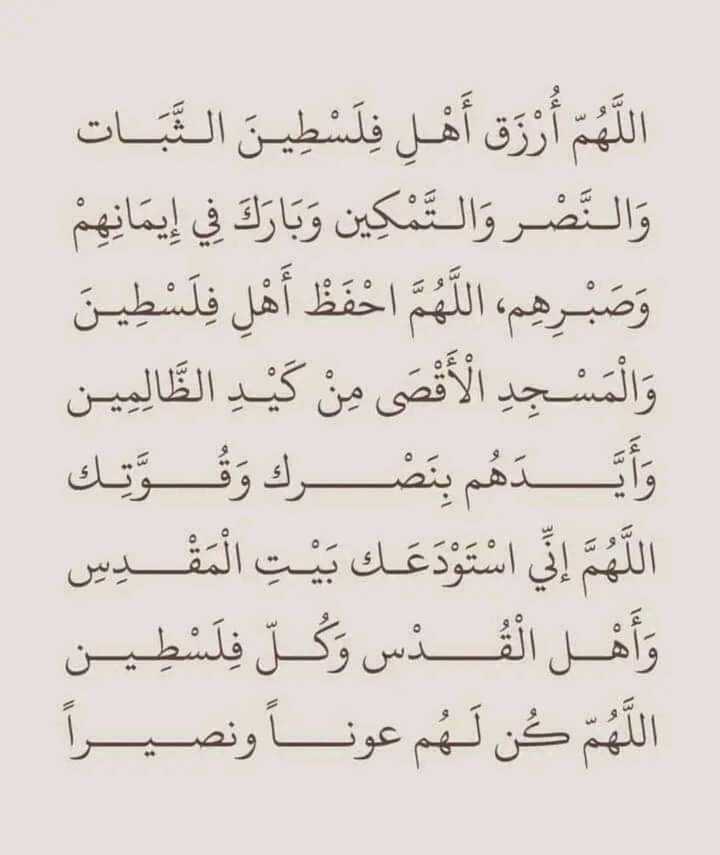 اللَّهُمّ أُرْزَق أَهْلِ فِلَسْطِينَ الثَّبَات
وَالنَّصْر وَالتَّمْكِين وَبَارَكَ فِي إِيمَانِهِمْ
وَصَبْرِهِم، اللَّهُمَّ احْفَظْ أَهْلِ فِلَسْطِينَ
وَالْمَسْجِدِ الْأَقْصَى مِنْ كَيْدِ الظَّالِمِين
وَأَيَّدَهُم بِنَصْرك وَقُوَّتِك
اللَّهُمَّ إنِّي اسْتَوْدَعَك بَيْتِ الْمَقْدِسِ
وَأَهْل الْقُدْس وَكُلّ فِلَسْطِين
اللَّهُمّ كُن لَهُم عوناً ونصيراً